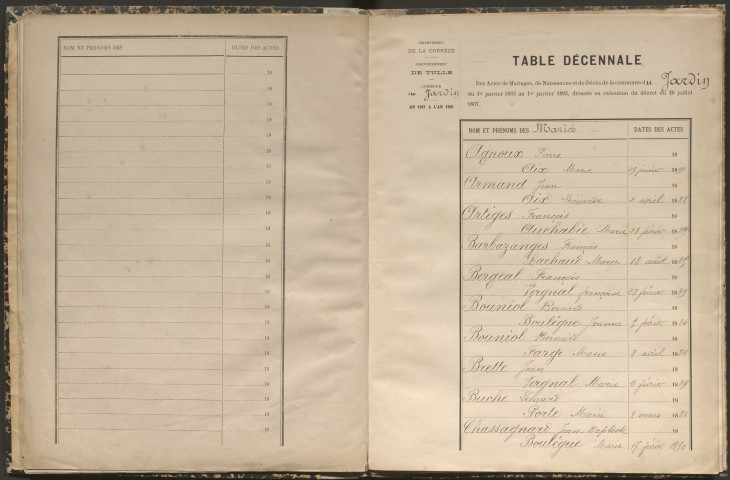 NOM ET PRÉNOMS DES
DATES DES ACTES
18
18
18
18
18
18
18
18
18
18
18
18
18
18
18
18
18
18
18
18
18
18
18
DÉPARTEMENT
DE LA CORRÈZE
ARRONDISSEMENT
DE TULLE
COMMUNE
du Jardin
AN 1883 A L'AN 1893
TABLE DÉCENNALE
Des Actes de Mariages, de Naissances et de Décès de la commune du Jardin
du 1er janvier 1883 au 1er janvier 1893, dressée en exécution du décret du 20 juillet
1807.
NOM ET PRÉNOMS DES Mariés DATES DES ACTES
Agnoux Pierre 18
Aix Marie janvier 1891
Armand Jean 18
Aix avril 1888
Artiges François 18
Auchabie Marie février 18
Barbazanges François 18
Lachaud Marie 18 août 1885
Bergeal François 18
Vergnal françoise 23 février 1889
Bouniol Bernard 18
Boulègue Jeanne 5 février 1884
Bouniol Bernard 18
Farge Marie avril 18
Brette Jean 18
Vergnal Marie février 18
Buche Léonard 18
Porte Marie mars 1886
Chassagnard Jean Baptiste 18
Boulègue Marie 17 février 1890